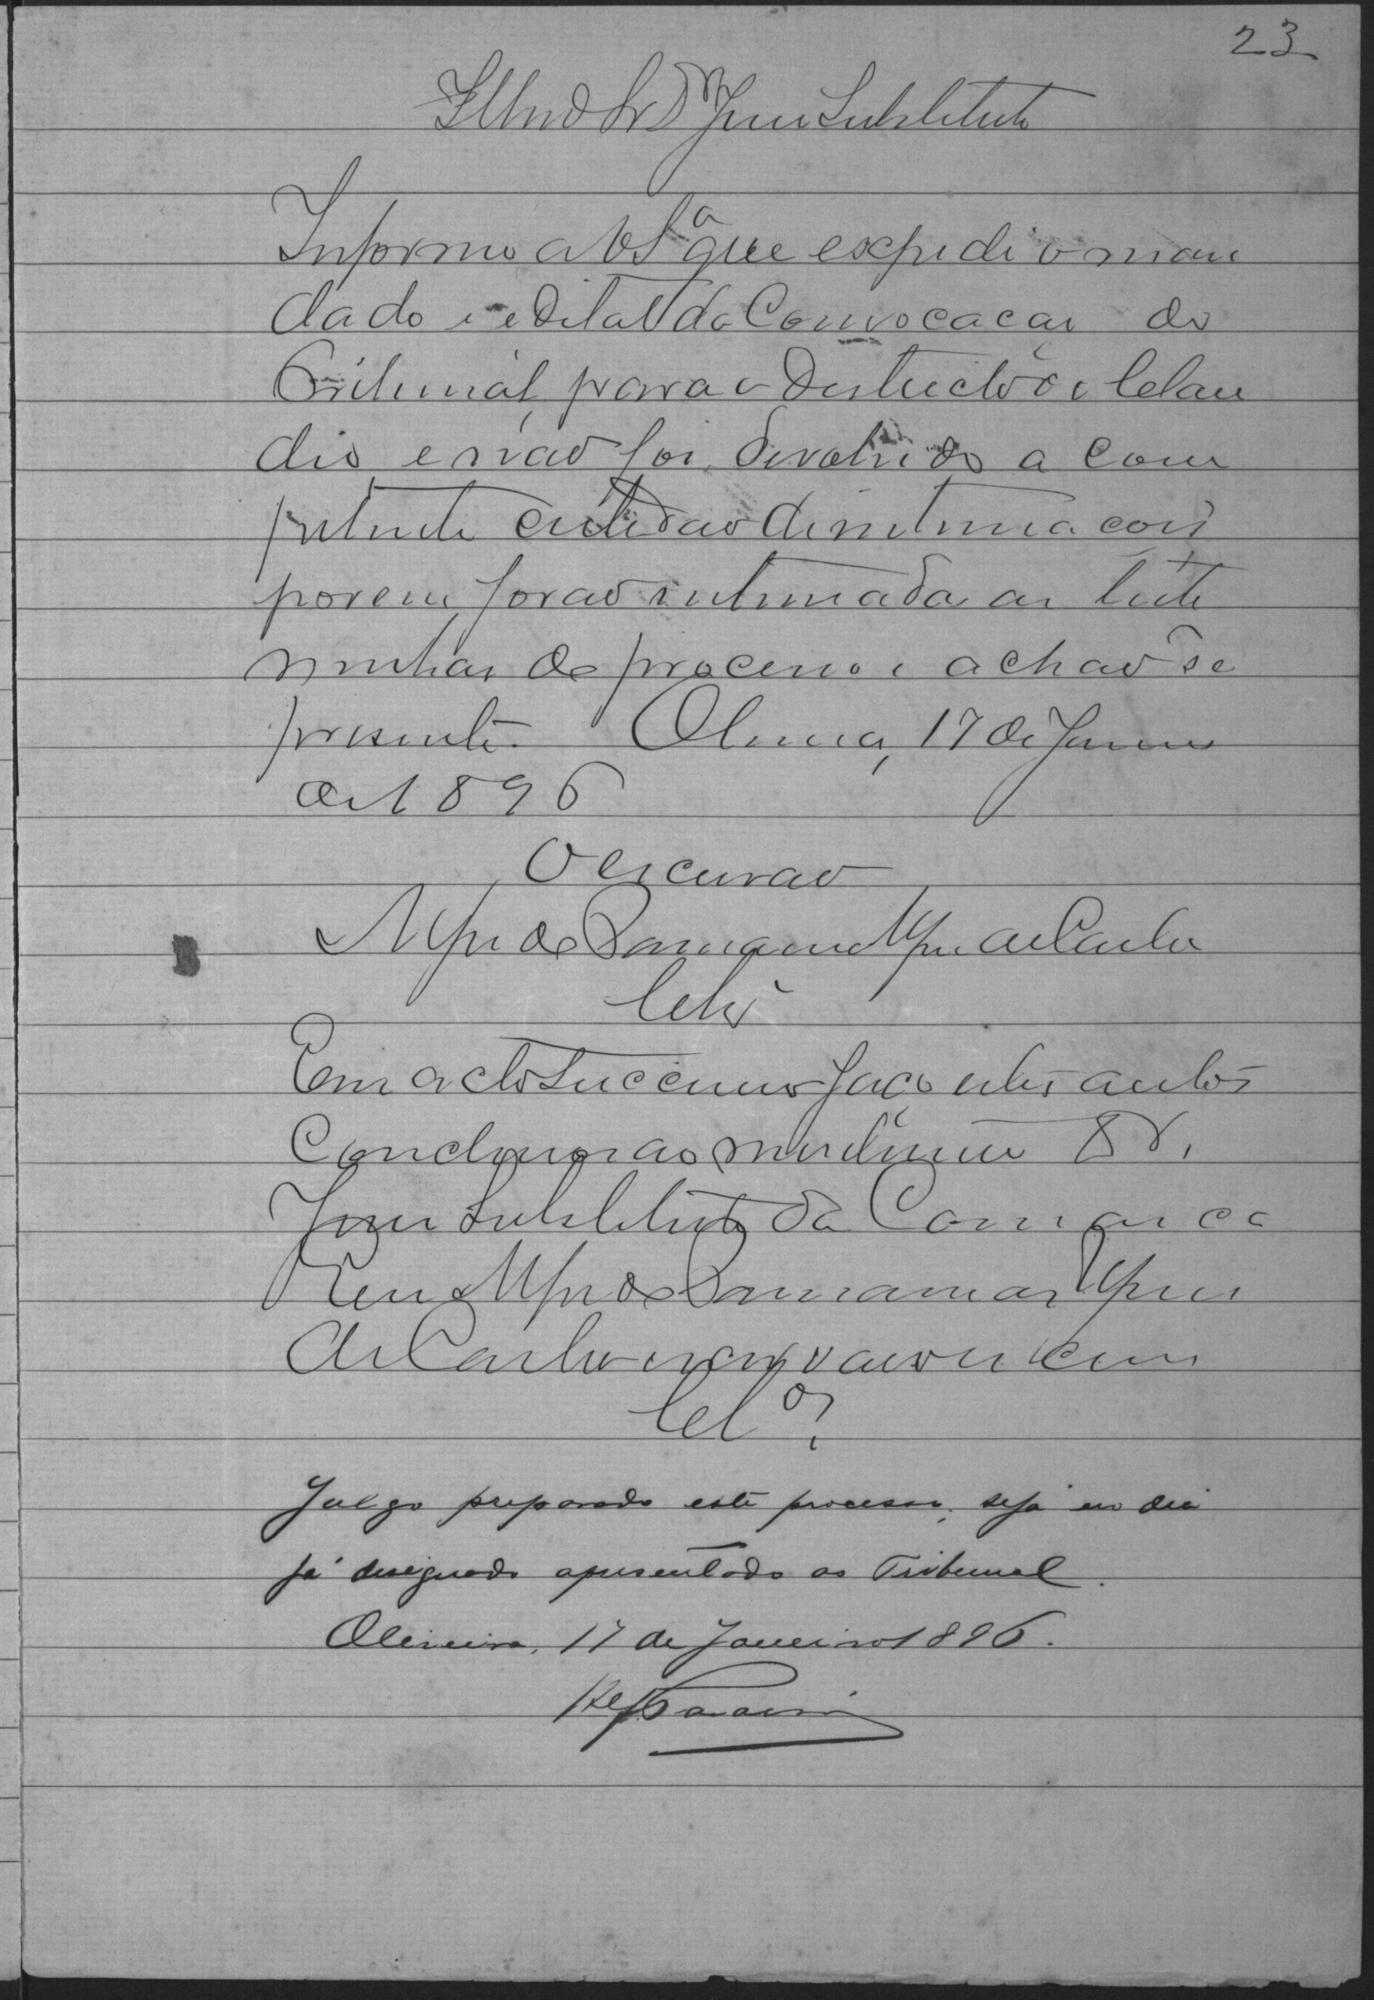 23
Illmo Sr Dr Juiz Substituto
Informo a VSª que expedi o man
dado e edital da Convocacao do
Tribunal, para o districto de Clau
dio e não foi devolvido a com
petente certidão de intimacois
porem forao intimada as teste
munhas do processo e achao se
presente. Oliveira, 17 de Janeiro
de 1896
O escrivao
Clsº
Em acto successivo faço estes autos
Conclusos ao meritissimo Dr.
Juiz Substituto da Comarca
de Castro escrivao escrevi
Clº
Julgo preparado este processo; seja no dia
já designado apresentado ao Tribunal.
Oliveira, 17 de Janeiro 1896.